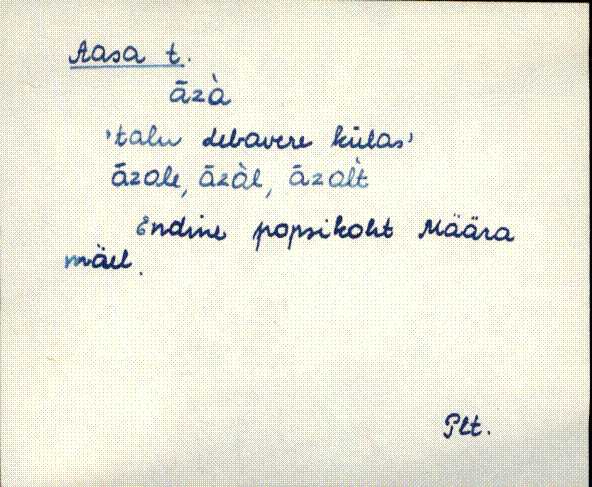 Aasa t.
āzà
'talu Lebavere külas'
āzole, āzàl, āzolt̀
Endine popsikoht Määra
mäel.
Plt.